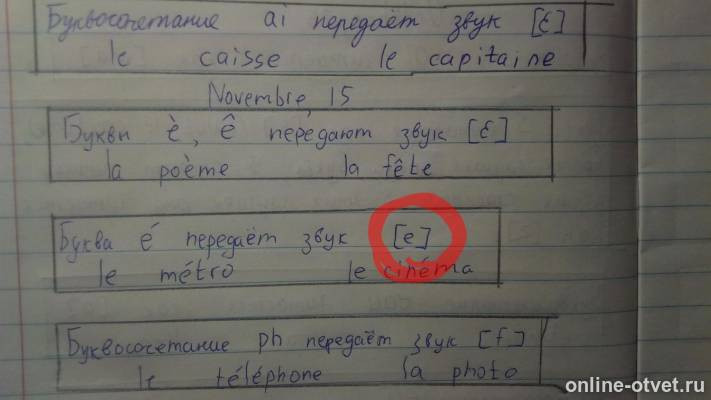 Буквосочетание ai передаёт звук [ɛ]
le caisse le capitaine
Novembre, 15
Буквы è, ê передают звук [ɛ]
la poème la fête
Буква é передаёт звук [e]
le métro le cinéma
Буквосочетание ph передаёт звук [f]
le téléphone la photo
online-otvet.ru